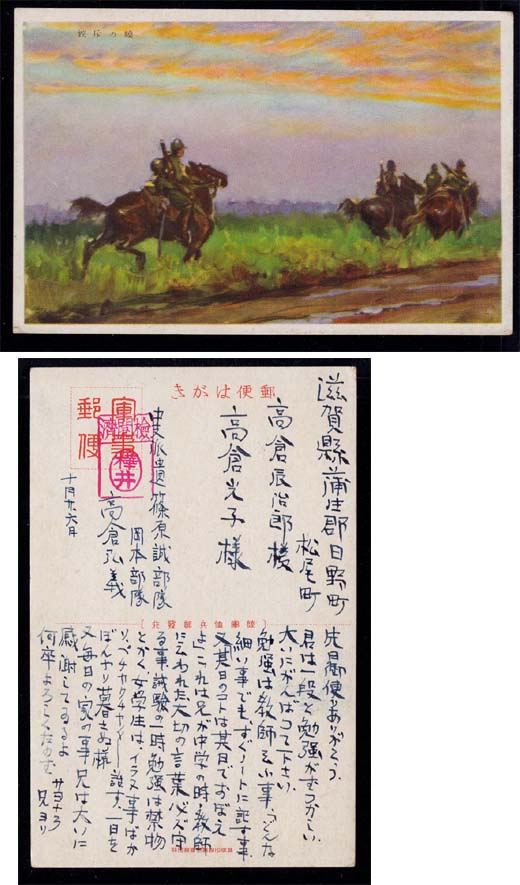 暁の斥候
郵便はがき
軍事郵便
検閲済
樺井
滋賀縣蒲生郡日野町
松尾町
高倉辰治郎様
高倉光子様
中支派遣篠原誠部隊
岡本部隊
高倉弘義
十月廿六日
陸軍恤兵部發行
先日郵便ありがとう。
君は一段と勉強がむつかしい。
大いにがんばつて下さい。
勉強は教師を云ふ事、どんな
細い事でもすぐノートに記す事、
又其日のコトは其日でおぼえ
よ」これは兄が中学の時、教師
に云われた大切の言葉、必ズ守
る事試験の一時勉強は禁物
とかく女学生は、イラヌ事ばか
り、ペチヤクチヤと 話す、一日を
ぼんやり暮さぬ様
又毎日の家の事兄は大いに
感謝してゐるよ
何卒よろしくたのむ
サヨナラ
兄ヨリ